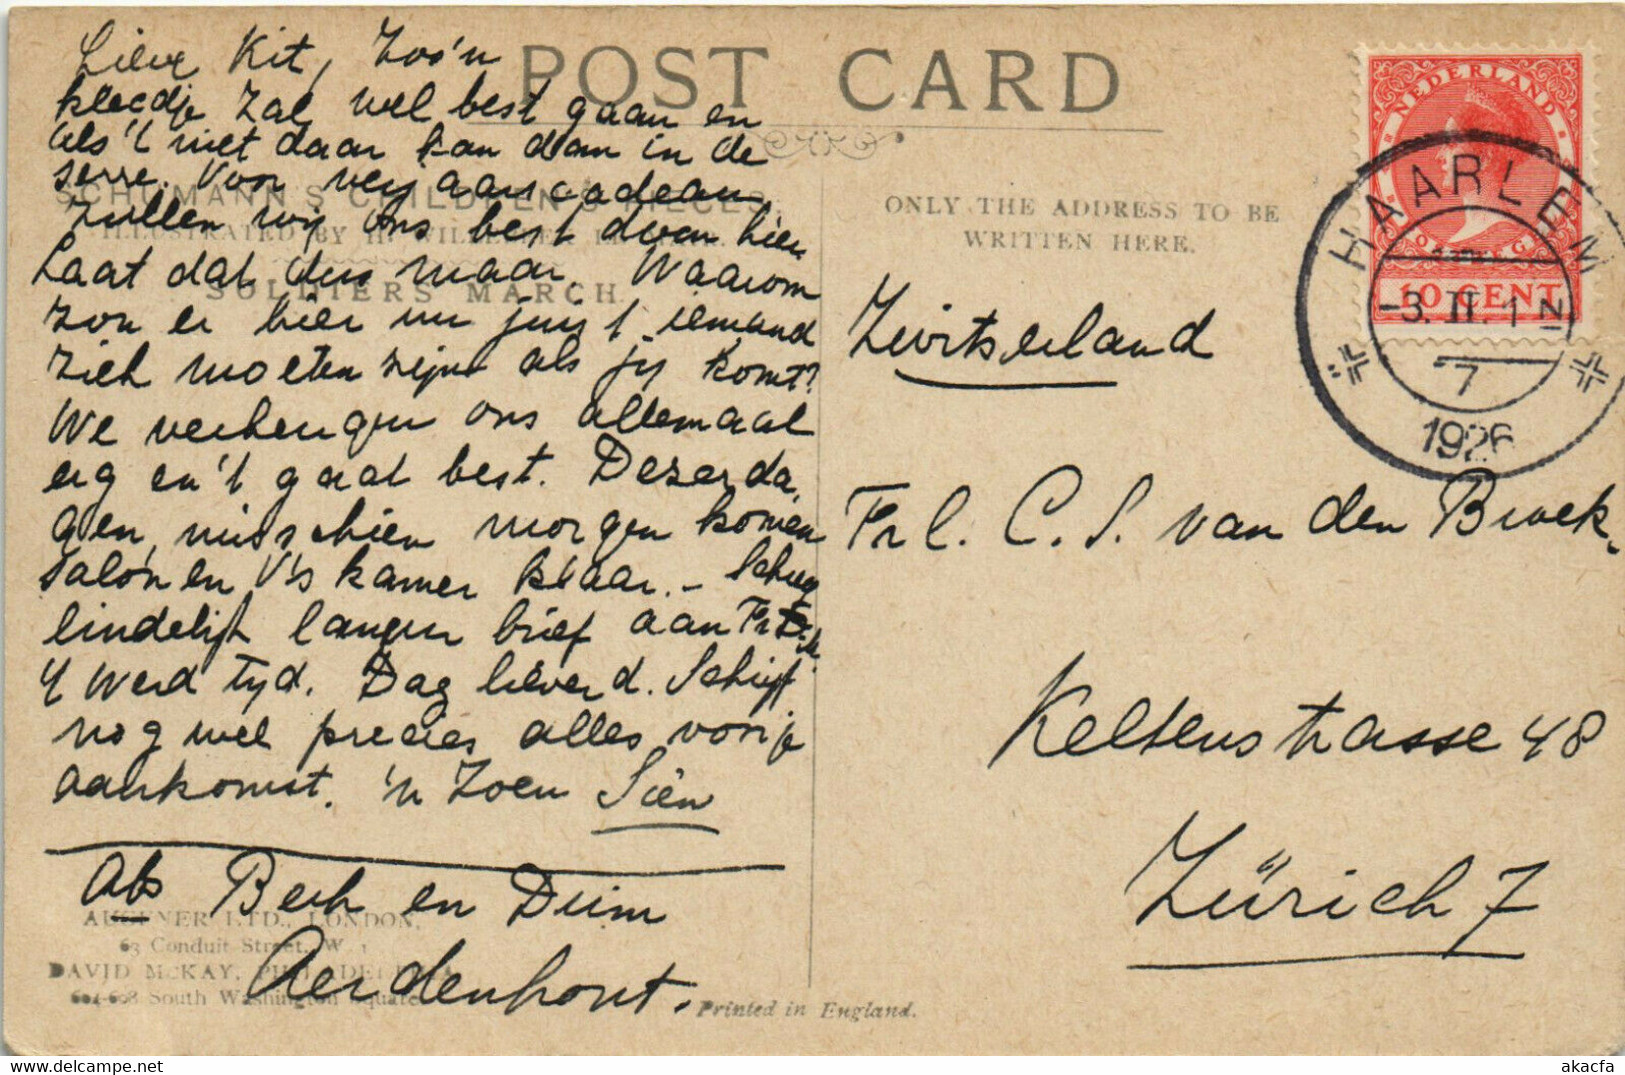 POST CARD
Lieve Kit, Zoo'n
kleedje zal wel best gaan en
als 't niet daar kan dan in de
serre. Voor verjaarscadeau
zullen wij ons best doen hier
Laat dat dus maar. Waarom
zou er hier nu juist iemand
ziek moeten zijn als jij komt?
We verheugen ons allemaal
erg en 't gaat best. Dezer da,
gen, misschien morgen komen
salon en V's kamer klaar. – Schreef
eindelijk langen brief aan Fr
't werd tyd. Dag lieverd. Schrijf
nog wel precies alles vóór je
aankomst. 'n Zoen Siên
SCHUMANN'S CHILDREN'S PIECES
ILLUSTRATED BY H. WILLEBEEK LE MAIR.
SOLDIERS' MARCH
Abs Berk en Duin
Aerdenhout.
AUGENER LTD., LONDON,
63 Conduit Street, W. 1
DAVID McKAY, PHILADELPHIA
604-608 South Washington Square
Printed in England.
ONLY THE ADDRESS TO BE
WRITTEN HERE.
NEDERLAND
10 CENT
HAARLEM
-3. II. 1 N
7
1926
Zwitserland
Frl. C. S. van den Broek.
Keltenstrasse 48
Zürich 7
akacfa